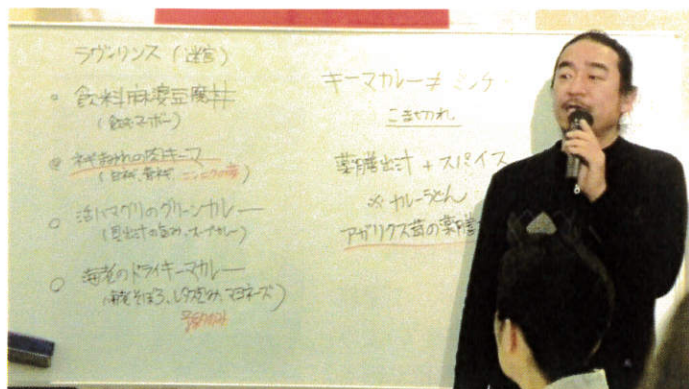 ラヴィリンス（迷宮）
飲料麻婆豆腐丼
（飲むマーボー）
ネギまみれの肉キーマ
（白ネギ、青ネギ、ニンニクの芽）
活ハマグリのグリーンカレー
（貝出汁の旨み、スープカレー）
海老のドライキーマカレー
（海老そぼろ、レタス包み、マヨネーズ）
キーマカレー≠ミンチ
こま切れ
薬膳出汁＋スパイス
※カレーうどん
アガリクス茸の薬膳